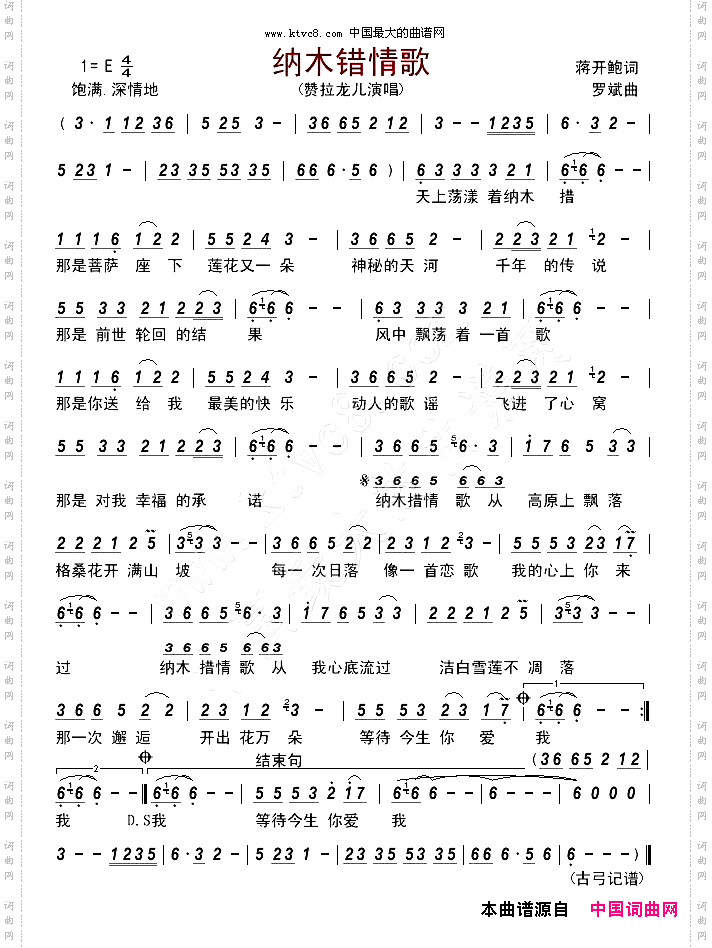 www.ktvc8.com 中国最大的曲谱网
纳木错情歌
1=E 4/4
蒋开鲍词
饱满.深情地
(赞拉龙儿演唱)
罗斌曲
( 3 · 1 12 36 | 5 25 3 - | 36 65 2 12 | 3 - - 1235 | 6 · 3 2 - |
5 23 1 - | 23 35 53 35 | 66 6 · 5 6 ) | 6 3 3 3 3 2 1 | 6 1 6 6 - - |
天上荡漾 着纳木 措
1 1 1 6 1 2 2 | 5 5 2 4 3 - | 3 6 6 5 2 - | 2 2 2 3 2 1 1 2 - |
那是菩萨 座 下 莲花又一 朵 神秘的天 河 千年 的传 说
5 5 3 3 2 1 2 2 2 3 | 6 1 6 6 - - | 6 3 3 3 3 2 1 | 6 1 6 6 - - |
那是 前世 轮回 的结 果 风中 飘荡 着 一首 歌
1 1 1 6 1 2 2 | 5 5 2 4 3 - | 3 6 6 5 2 - | 2 2 2 3 2 1 1 2 - |
那是你送 给 我 最美的快 乐 动人的歌 谣 飞进 了心 窝
5 5 3 3 2 1 2 2 2 3 | 6 1 6 6 - - | 3 6 6 5 5 6 · 3 | 1 7 6 5 3 3 |
3 6 6 5 6 6 3
那是 对我 幸福 的承 诺 纳木措情 歌 从 高原上 飘 落
2 2 2 1 2 5 | 3 5 3 3 - - | 3 6 6 5 2 2 | 2 3 1 2 2 3 - | 5 5 5 3 2 3 1 7 |
格桑花开 满山 坡 每一 次日落 像一 首恋 歌 我的心上 你 来
6 1 6 6 - - | 3 6 6 5 5 6 · 3 | 1 7 6 5 3 3 | 2 2 2 1 2 5 | 3 5 3 3 - - |
3 6 6 5 6 6 3
过 纳木 措情 歌 从 我心底流过 洁白雪莲不 凋 落
3 6 6 5 2 2 | 2 3 1 2 2 3 - | 5 5 5 3 2 3 1 7 | 1 6 1 6 6 - - :|
那一次 邂 逅 开出 花万 朵 等待 今生 你 爱 我
结束句
(36 65 2 12 |
2 6 1 6 6 - - | 6 1 6 6 - - | 5 5 5 3 2 1 7 | 6 1 6 6 - - | 6 - - - | 6 0 0 0 |
我 D.S我 等待今生 你爱 我
3 - - 1235 | 6 · 3 2 - | 5 23 1 2 | 23 35 53 35 | 66 6 · 5 6 | 6 - - - ) |
(古弓记谱)
本曲谱源自 中国词曲网